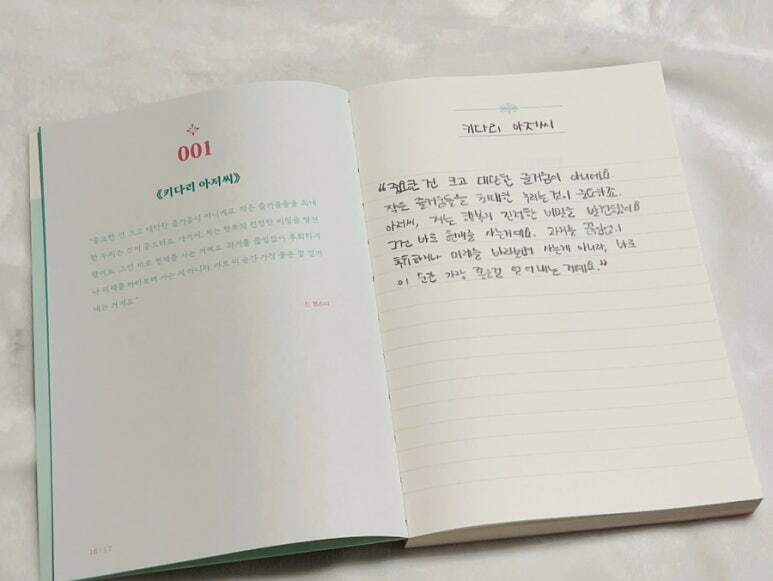 001
《키다리 아저씨》
"중요한 건 크고 대단한 즐거움이 아니에요. 작은 즐거움들을 최대
한 누리는 것이 중요하죠. 아저씨, 저는 행복의 진정한 비밀을 발견
했어요. 그건 바로 현재를 사는 거예요. 과거를 끊임없이 후회하거
나 미래를 바라보며 사는 게 아니라, 바로 이 순간 가장 좋은 걸 얻어
내는 거예요."
진 웹스터
16 | 17
키다리 아저씨
"중요한 건 크고 대단한 즐거움이 아니에요
작은 즐거움들을 최대한 누리는것이 중요하죠.
아저씨, 저는 행복의 진정한 비밀을 발견했어요
그건 바로 현재를 사는거예요. 과거를 끊임없이
후회하거나 미래를 바라보며 사는게 아니라, 바로
이 순간 가장 좋은걸 얻어내는 거예요."